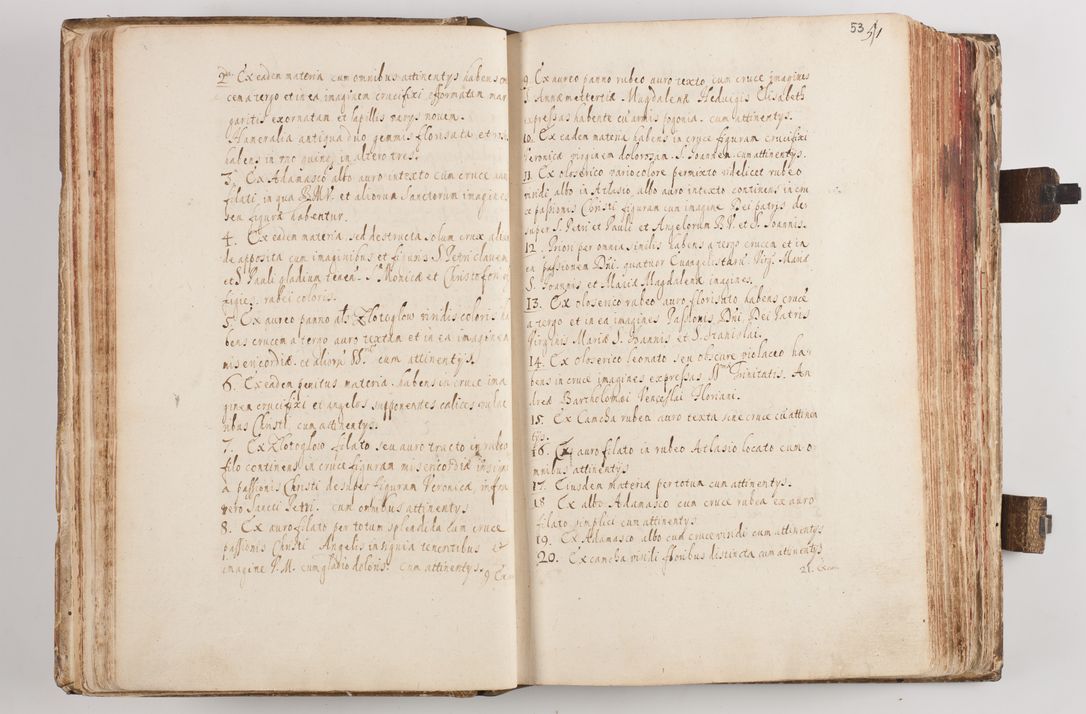 2da. Ex eadem materia cum omnibus attinentys habens
cem a tergo et in ea imaginem crucifixi efformatam mar
garitis exornatam et lapillis varys novem.
Humeralia antiqua duo gemmis florisata et
habens in vno quinq, in altero tres.
3. Ex Adamasco albo auro intexto cum cruce
filati, in qua B.M.V. et aliorum Sanctorum imagines
seu figuræ habentur.
4. Ex eadem materia, sed destructa solum crux
de apposita cum imaginibus et figuris S. Petri clavem
et S. Pauli gladium tenen. S. Monicæ et Christofori
figies, rubei coloris.
5. Ex aureo panno als Zlotoglow viridis coloris ha
bens crucem a tergo auro textam et in ea imaginem
misericordiæ, et aliorū SS. cum attinentys.
6. Ex eadem penitus materia habens in cruce ima
ginem crucifixi et angelos supponentes calices
ribus Christi, cum attinentys.
7. Ex Zlotoglow filato seu auro tracto in rubeo
filo continens in cruce figuram misericordiæ insignia
passionis Christi desuper figuram Veronicæ, infra
vero Sancti Petri. cum omnibus attinentys
8. Ex auro filato per totum splendida cum cruce
passionis Christi Angelis insignia tenentibus et
imagine B. M. cum gladio doloris. Cum attinentys.
9 Ex
53 51
9. Ex aureo panno rubeo auro texto cum cruce imagines
S. Annæ mettertiæ Magdalenæ Hedvigis Elisabeth
expressas habente cū armis Pogonia. cum attinentys.
10. Ex eadem materia habens in cruce figuram crucifixi
Veronicæ virginem dolorosam S. Joannem. cum attinentys.
11. Ex oloserico variocolore permixto videlicet rubeo
viridi albo in Atlasio, albo auro intexto continens in cru
ce passionis Christi figuram cum imagine Dei patris de
super S. Petri et Pauli et Angelorum B.V. et S. Joannis.
12. Priori per omnia similis habens a tergo crucem et in
ea passionem Dni. quatuor Euangelistarū Virg. Mariæ
S. Joannis et Mariæ Magdalenæ imagines.
13. Ex oloserico rubeo auro florisato habens crucē
a tergo et in ea imagines Passionis Dni. Dei Patris
Virginis Mariæ S. Joannis et S. Stanislai.
14. Ex oloserico leonato seu obscure violaceo ha
bens in cruce imagines expressas SSmæ Trinitatis. An
dreæ Bartholomei Venceslai Floriani.
15. Ex Cancha rubea auro texta sine cruce cū attinen
tys.
16. Ex auro filato in rubeo Atlasio locato cum o
mnibus attinentys
17. Eiusdem materiæ per totum cum attinentys.
18 Ex albo Adamasco cum cruce rubea ex auro
filato simplici cum attinentys
19. Ex Adamasco albo cum cruce viridi cum attinentys
20. Ex cancha viridi floribus distincta cum attinentys
21. Ex